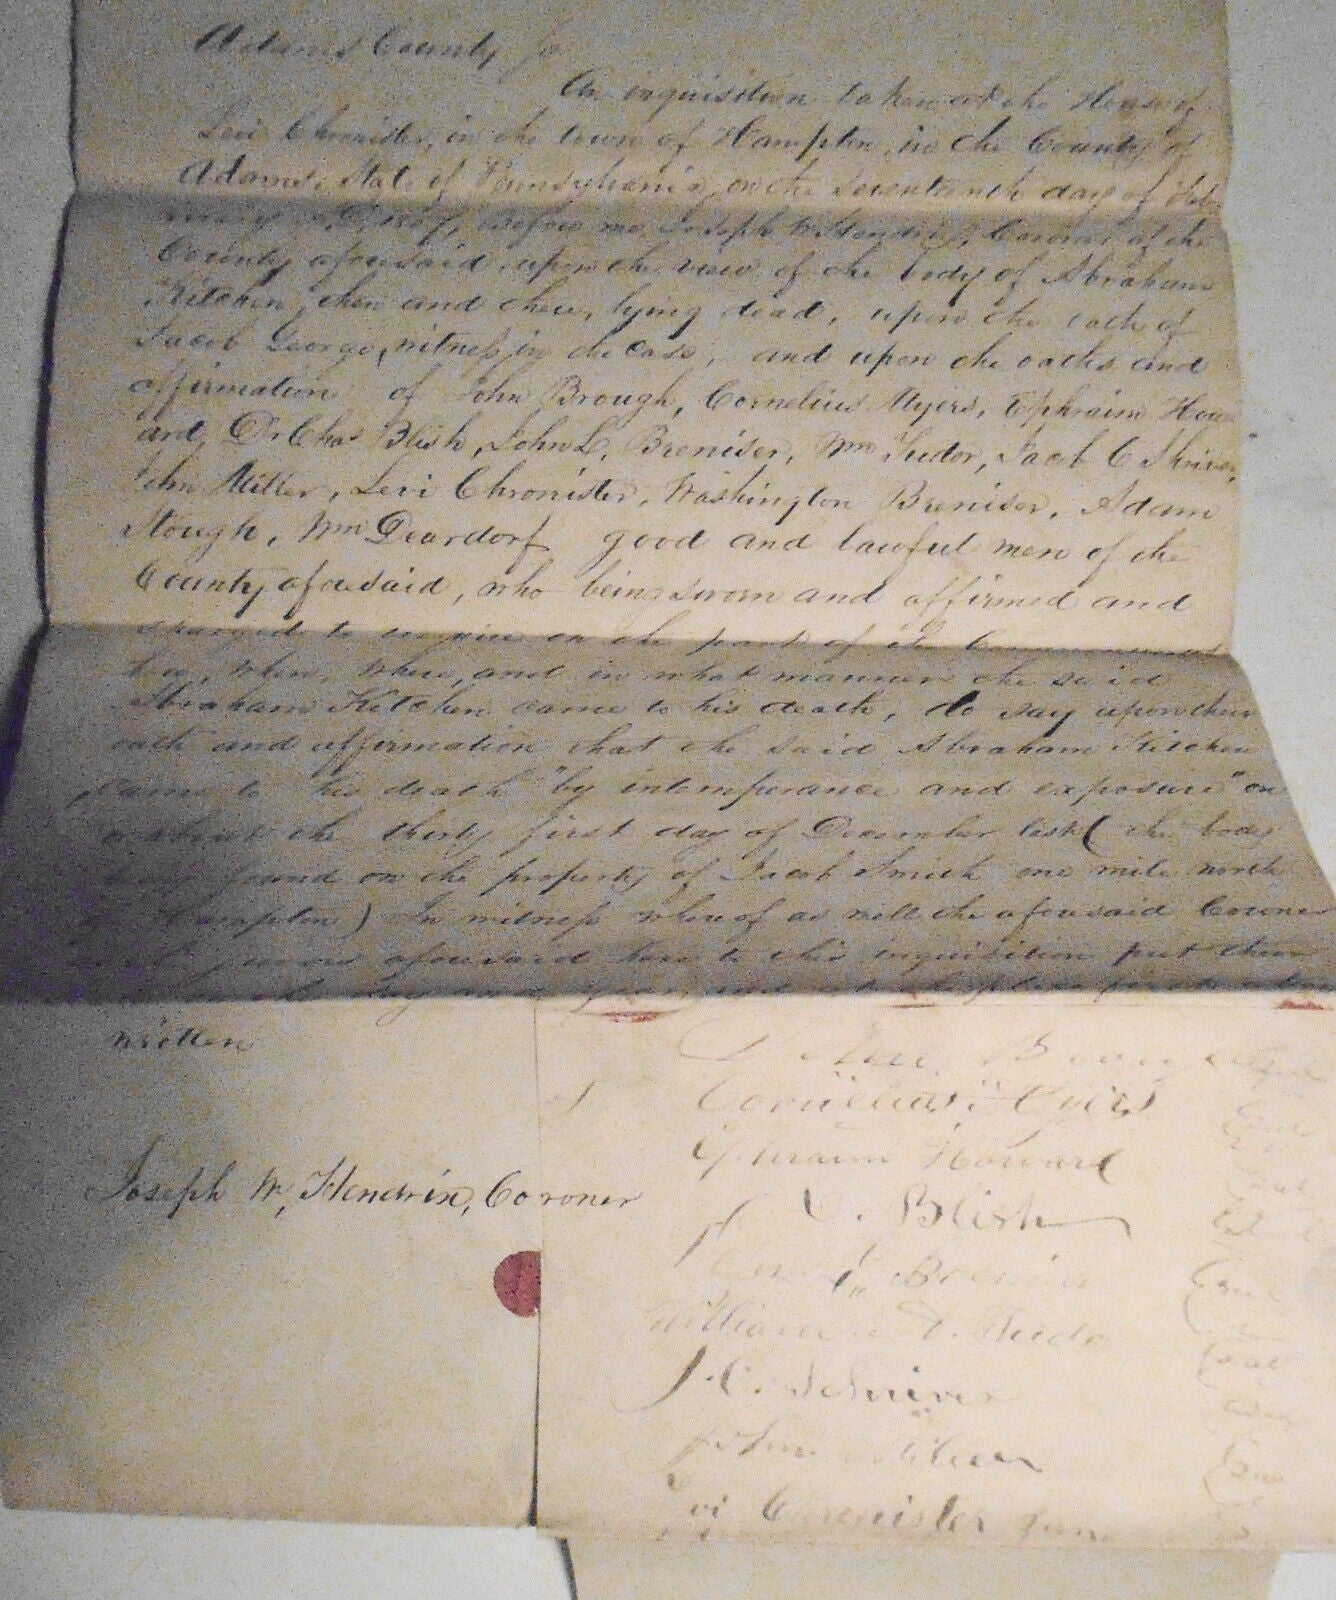 Adams County ss
An inquisition taken at the House of
Levi Chronister, in the town of Hampton, in the County of
Adams, State of Pennsylvania, on the seventeenth day of Feb
before me Joseph W Hendrix, Coroner of the
County aforesaid, upon the view of the body of Abraham
Kitchen, then and there, lying dead, upon the oath of
Jacob George, witness in the case, and upon the oaths and
affirmation of John Brough, Cornelius Myers, Ephraim How
ard, Dr Chas Blish, John L. Breniser, Wm Tudor, Jacob C Shriver,
John Miller, Levi Chronister, Washington Breniser, Adam
Stough, Wm Deardorf good and lawful men of the
County aforesaid, who being sworn and affirmed and
charged to inquire on the part of the Commonwealth
how, when, where, and in what manner the said
Abraham Kitchen came to his death, do say upon their
oath and affirmation that the said Abraham Kitchen
came to his death "by intemperance and exposure" on
the thirty first day of December last (the body
was found on the property of Jacob Smith one mile north
Hampton) In witness whereof as well the aforesaid Coroner
jurors aforesaid have to this inquisition put their
on the day and year, and at the place first above
written
Joseph W, Hendrix, Coroner
John Brough
Cornelius Myers
Ephraim Howard
C. Blish
Breniser
William Tudor
J. C. Schriver
John Miller
Levi Chronister